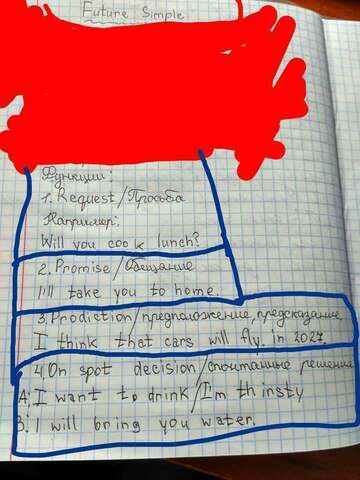 Future Simple
Функции:
1. Request/Просьба
Например:
Will you cook lunch?
2. Promise/обещание
I'll take you to home.
3. Prodiction/предположение, предсказание
I think that cars will fly in 2027.
4. On spot decision/спонтанные решение
A: I want to drink/I'm thinsty
B: I will bring you water.